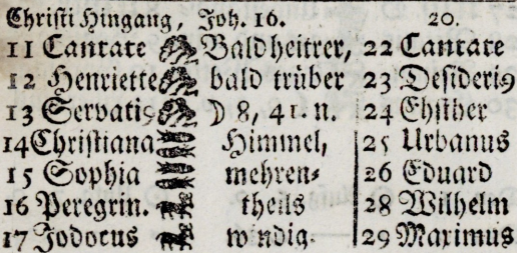 Christi Hingang, Joh. 16. 20.
11 Cantate Bald heitrer, 22 Cantate
12 Henriette bald trüber 23 Desideriꝰ
13 Servatiꝰ ☽ 8, 41. n. 24 Ehsther
14 Christiana Himmel, 25 Urbanus
15 Sophia mehren⸗ 26 Eduard
16 Peregrin. theils 28 Wilhelm
17 Jodocus windig. 29 Maximus